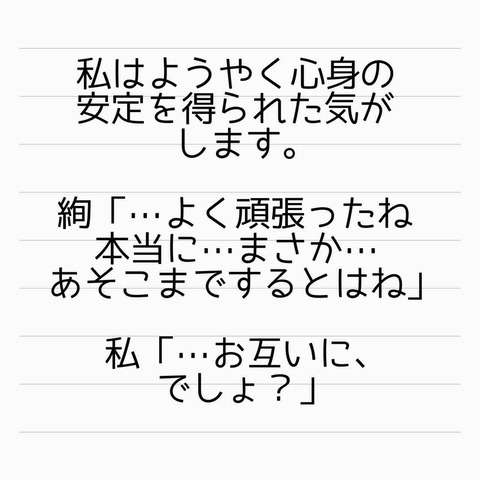 私はようやく心身の
安定を得られた気が
します。
絢「…よく頑張ったね
本当に…まさか…
あそこまでするとはね」
私「…お互いに、
でしょ？」